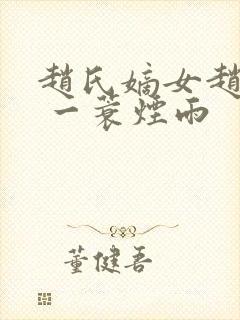 趙氏嫡女趙
一蓑煙雨
董健吾